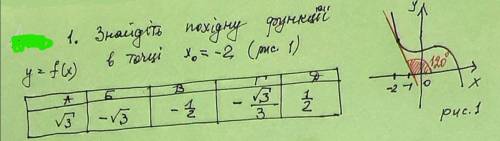 1. Знайдіть похідну функції
y = f(x) в точці x₀ = -2 (рис 1)
А Б В Г Д
√3 -√3 -1/2 -√3/3 1/2
y
120°
-2 -1 0 x
рис. 1